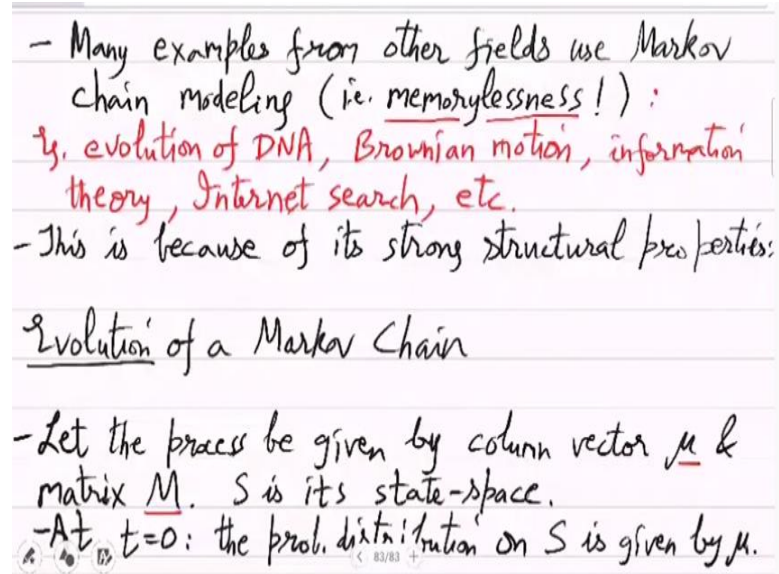 - Many examples from other fields use Markov
chain modeling (i.e. memorylessness!) :
Eg. evolution of DNA, Brownian motion, information
theory, Internet search, etc.
- This is because of its strong structural properties:
Evolution of a Markov Chain
- Let the process be given by column vector μ &
matrix M. S is its state-space.
- At t=0: the prob. distribution on S is given by μ.
< 83/83 +